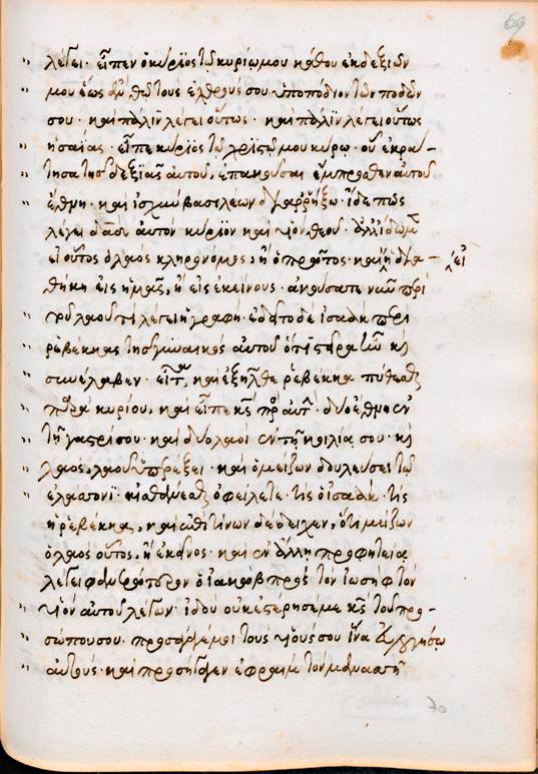 λέγει· εἶπεν ὁ κύριος τῷ κυρίῳ μου κάθου ἐκ δεξιῶν
μου ἕως ἂν θῶ τοὺς ἐχθρούς σου ὑποπόδιον τῶν ποδῶν
σου· καὶ πάλιν λέγει οὕτως· καὶ πάλιν λέγει οὕτως
ἡσαΐας· εἶπε κύριος τῷ χριστῷ μου κύρῳ· οὗ ἐκρα–
τησα τῆς δεξιᾶς αὐτοῦ, ἐπακοῦσαι ἔμπροσθεν αὐτοῦ
ἔθνη· καὶ ἰσχὺν βασιλέων διαρρήξω· ἴδε πῶς
λέγει δαδ αὐτὸν κύριον καὶ υἱὸν θεοῦ· ἀλλ' ἴδωμεν
εἰ οὗτος ὁ λαὸς κληρονόμος, ἢ ὁ πρῶτος· καὶ ἡ δια–
εἰ
θήκη εἰς ἡμᾶς, ἢ εἰς ἐκείνους· ἀκούσατε νῦν περὶ
τοῦ λαοῦ τί λέγει ἡ γραφή· ἐδεῖτο δὲ ἰσαὰκ περὶ
ρεβέκκας τῆς γυναικὸς αὐτοῦ ὅτι στεῖρα ἦν κ
συνέλαβεν· εἶτα, καὶ ἐξῆλθε ρεβέκκα πυθέσθαι
παρὰ κυρίου, καὶ εἶπε κς πρὸς αὐτήν· δύο ἔθνη ἐν
τῇ γαστρί σου· καὶ δύο λαοὶ ἐν τῇ κοιλίᾳ σου· κ
λαὸς λαοῦ ὑπερέξει· καὶ ὁ μείζων δουλεύσει τῷ
ἐλάσσονι· αἰσθάνεσθαι ὀφείλετε· τίς ὁ ἰσαάκ· τίς
ἡ ρεβέκκα, καὶ ἐπὶ τίνων δέδειχεν, ὅτι μείζων
ὁ λαὸς οὗτος, ἢ ἐκεῖνος· καὶ ἐν ἄλλῃ προφητείᾳ
λέγει φανερώτερον ὁ ἰακὼβ πρὸς τὸν ἰωσὴφ τὸν
υἱὸν αὐτοῦ λέγων· ἰδοὺ οὐκ ἐστέρησέ με κς τοῦ προ–
σώπου σου· προσάγαγέ μοι τοὺς υἱούς σου ἵνα εὐλογήσω
αὐτούς· καὶ προσήγαγεν ἐφραὶμ τὸν μανασσῆ
70